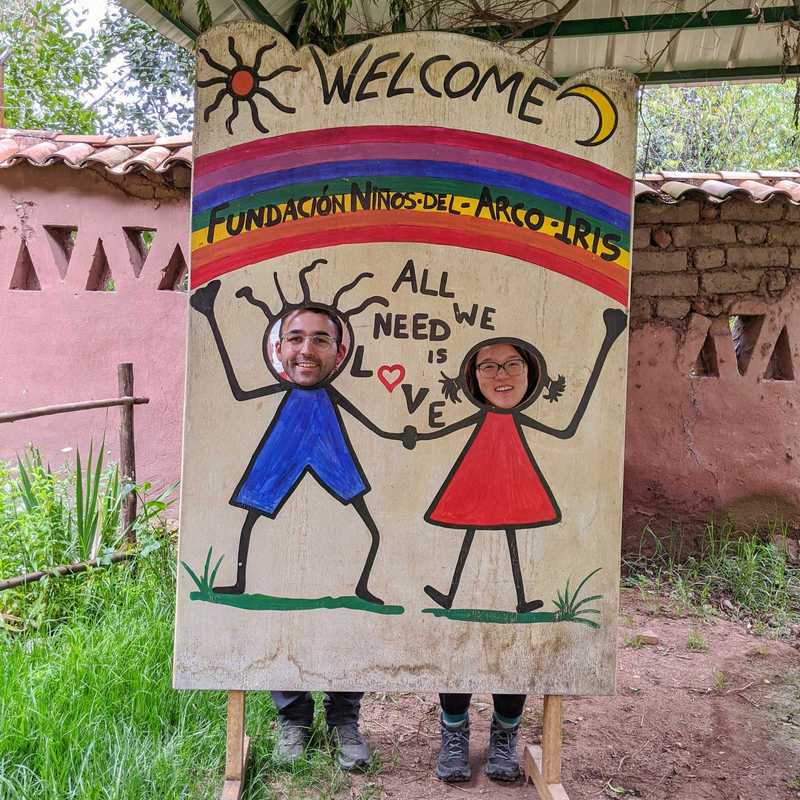 WELCOME
FUNDACIÓN NIÑOS-DEL-ARCO-IRIS
ALL WE
NEED
IS
LOVE